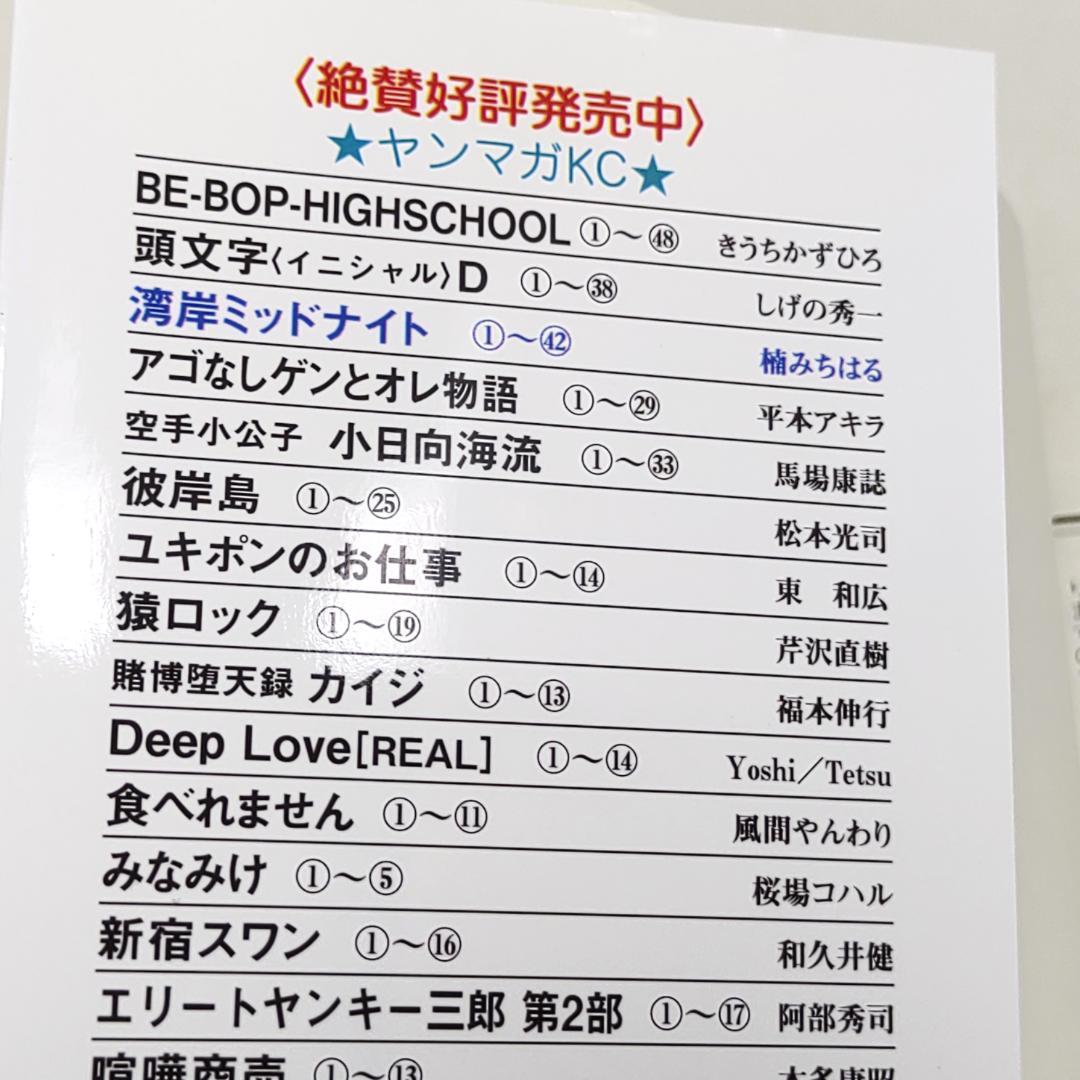 〈絶賛好評発売中〉
★ヤンマガKC★
BE-BOP-HIGHSCHOOL ①～㊽ きうちかずひろ
頭文字〈イニシャル〉D ①～㊳ しげの秀一
湾岸ミッドナイト ①～㊷ 楠みちはる
アゴなしゲンとオレ物語 ①～㉙ 平本アキラ
空手小公子 小日向海流 ①～㉝ 馬場康誌
彼岸島 ①～㉕ 松本光司
ユキポンのお仕事 ①～⑭ 東 和広
猿ロック ①～⑲ 芹沢直樹
賭博堕天録 カイジ ①～⑬ 福本伸行
Deep Love[REAL] ①～⑭ Yoshi／Tetsu
食べれません ①～⑪ 風間やんわり
みなみけ ①～⑤ 桜場コハル
新宿スワン ①～⑯ 和久井健
エリートヤンキー三郎 第2部 ①～⑰ 阿部秀司
喧嘩商売 ①～⑬ 木多康昭